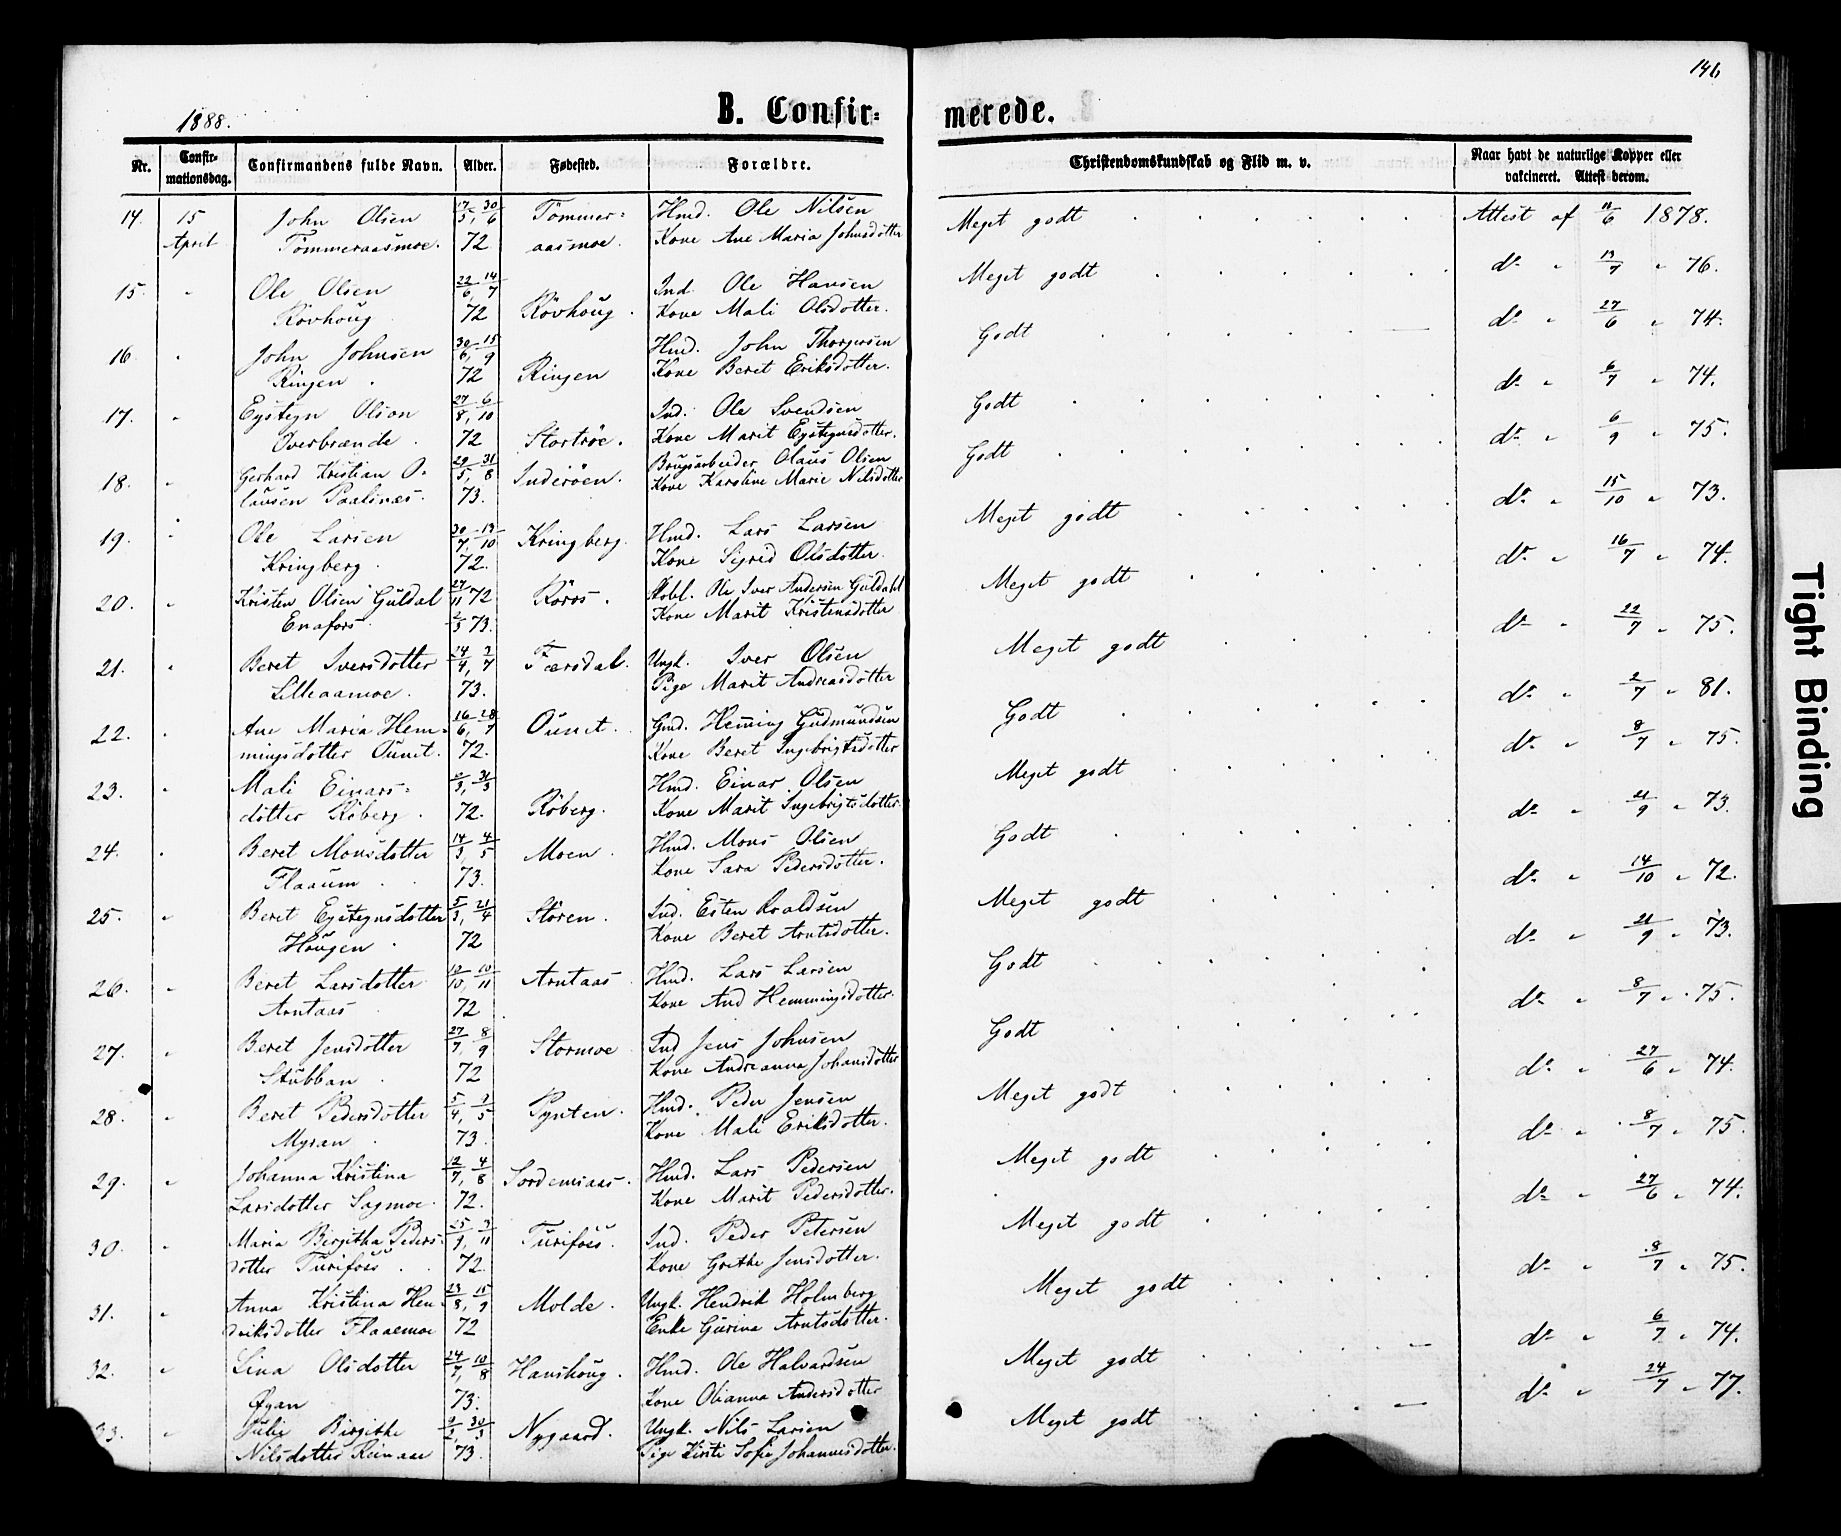 146
1888.
B. Confir-
merede.
Nr.
Confir-
mationsdag.
Confirmandens fulde Navn.
Alder.
Fødested.
Forældre.
Christendomskundskab og Flid m. v.
Naar havt de naturlige Kopper eller
vakcineret. Attest derom.
14. 15 John Olsen 17/5, 30/6 Tømmer= Hmd. Ole Nilsen Meget godt Attest af 11/6 1878.
April Tømmeraasmoe. 72 aasmoe. Kone Ane Maria Johnsdotter
15. " Ole Olsen 22/6, 14/7 Ind. Ole Hansen Meget godt do " 13/7 " 76.
Rovhoug 72 Rovhoug. Kone Mali Olsdotter.
16 " John Johnsen 30/6, 15/9 Hmd. John Thorgersen Godt do " 27/6 " 74.
Ringen 72 Ringen Kone Beret Eriksdotter.
17. " Eystegn Olson 27/8, 6/10 Ind. Ole Svendsen Godt do " 6/7 " 74.
Overbrænde. 72 Stortrøe. Kone Marit Eystegnsdotter.
18. " Gerhard Kristian O- 29/5, 31/8 Inderøen. Brugsarbeider Olaus Olsen Godt do " 6/9 " 75.
lausen Paalsnæs. 73. Kone Karoline Marie Nilsdotter
19. " Ole Larsen 30/7, 19/10 Kringberg. Hmd. Lars Larsen Meget godt do " 15/10 " 73.
Kringberg. 72. Kone Sigrid Olsdotter.
20. " Kristen Olsen Guldal 27/11 72 Røros. Ole Iver Andersen Guldahl Meget godt do " 16/7 " 74.
Enafors. 2/3 73. Kone Marit Kristensdotter
21. " Beret Iversdotter 14/4, 3/7 Færsdal. Ungk. Iver Olsen Meget godt do " 22/7 " 75.
Lilleaamoe. 73. Pige Marit Andreasdotter
22. " Ane Maria Hem= 16/6, 28/7 Ounet. Gmd. Heming Gudmundsen Godt do " 2/7 " 81.
mingsdotter Ounet. 72. Kone Beret Ingebrigtsdotter
23. " Mali Einars= 31/3 Hmd. Einar Olsen Meget godt do " 8/7 " 75.
dotter Røberg. 72. Røberg. Kone Marit Ingebrigtsdotter
24. " Beret Monsdotter 14/3, 4/5 Moen Hmd. Mons Olsen Godt do " 21/9 " 73.
Flaaum 73. Kone Sara Pedersdotter.
25. " Beret Eystegnsdotter 5/3, 21/4 Støren. Ind. Esten Roaldsen Meget godt do " 14/10 " 72.
Haugen 72 Kone Beret Arntsdotter.
26. " Beret Larsdotter 12/10, 10/11 Arntaas Hmd. Lars Larsen Godt do " 21/9 " 73.
Arntaas 72 Kone And Hemmingsdotter.
27. " Beret Jensdotter 27/7, 8/9 Stormoe Ind Jens Johnsen Godt do " 8/7 " 75.
Stubban 72 Kone Andreanna Johansdotter
28. " Beret Pedersdotter 5/4, 3/5 Pynten. Hmd. Peder Jensen Meget godt do " 27/6 " 74.
Myran 73. Kone Mali Eriksdotter.
29. " Johanna Kristina 12/7, 4/8 Hmd. Lars Pedersen Meget godt do " 8/7 " 75.
Larsdotter Sagmoe. 72. Kone Marit Pedersdotter.
30. " Maria Birgitha Peders- 25/9, 3/11 Turifoss. Ind. Peder Petersen Meget godt do " 27/6 " 74.
dotter Turifoss 72. Kone Grethe Jensdotter.
31. " Anna Kristina Hen- 23/8, 15/9 Molde. Ungk. Hendrik Holmberg Meget godt do " 8/7 " 75.
driksdotter Flaaemoe 72 Enke Gurine Arntsdotter.
32. " Lina Olsdotter 24/7, 10/8 Hanshoug. Hmd. Ole Halvardsen Meget godt do " 6/7 " 74.
Øyan 73. Kone Olianna Andersdotter
33. " Julie Birgithe 30/3 Nygaard. Ungk. Nils Larsen Meget godt do " 24/7 " 77.
Nilsdotter Reinaae 73. Pige Kirsti Sofie Johannesdotter.
Tight Binding